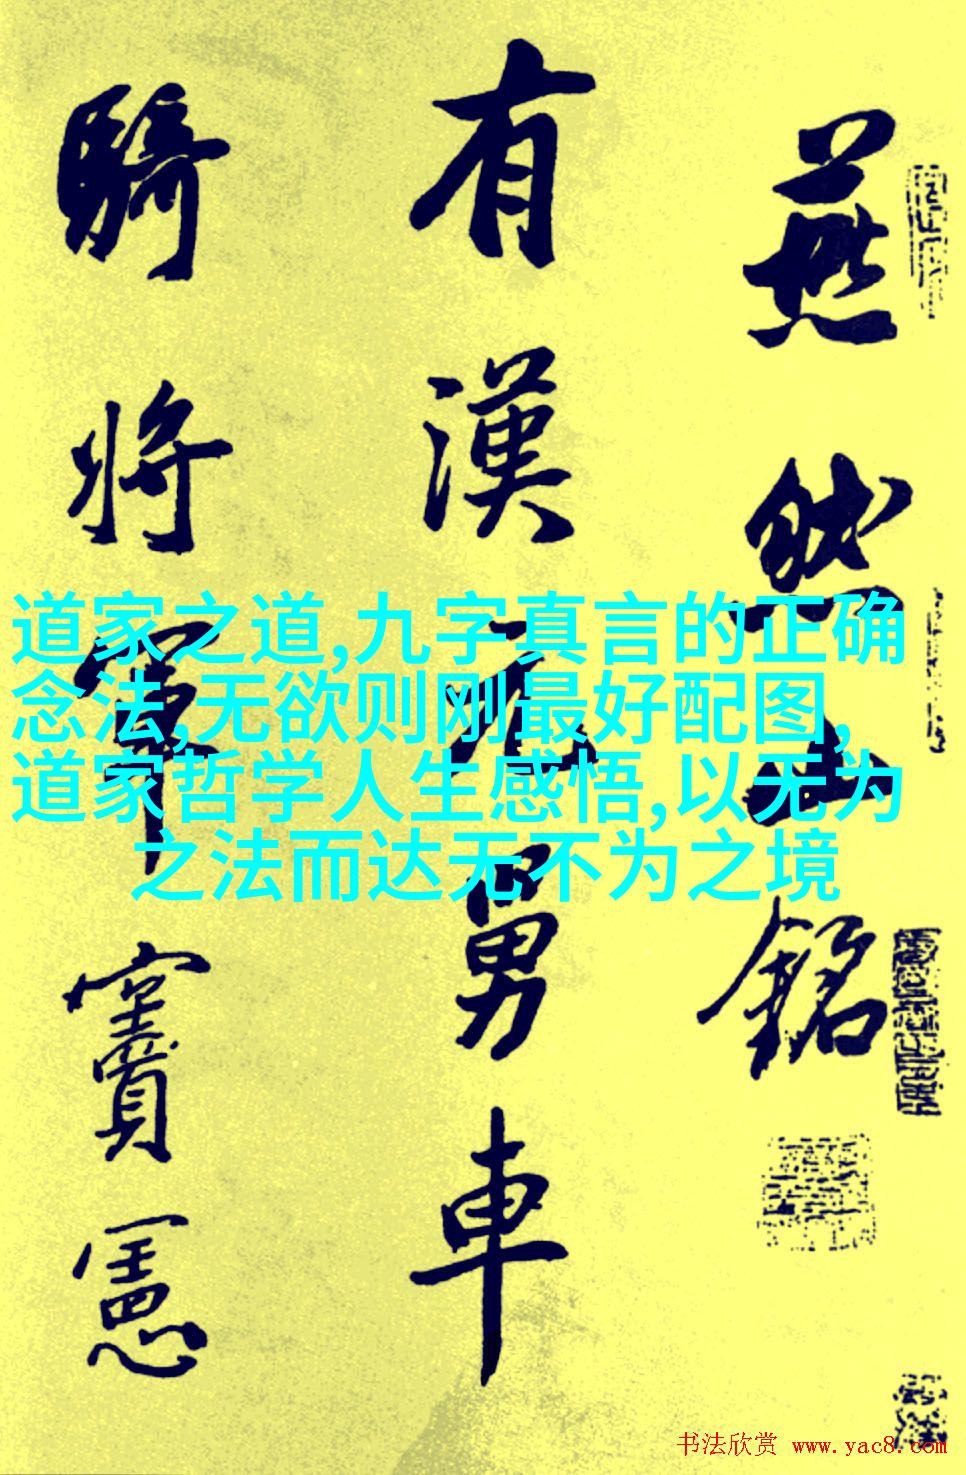 燕然山銘
有漢元舅車
騎將軍竇憲
道家之道,九字真言的正确
念法,无欲则刚最好配图,
道家哲学人生感悟,以无为
之法而达无不为之境
书法欣赏 www.yac8.com